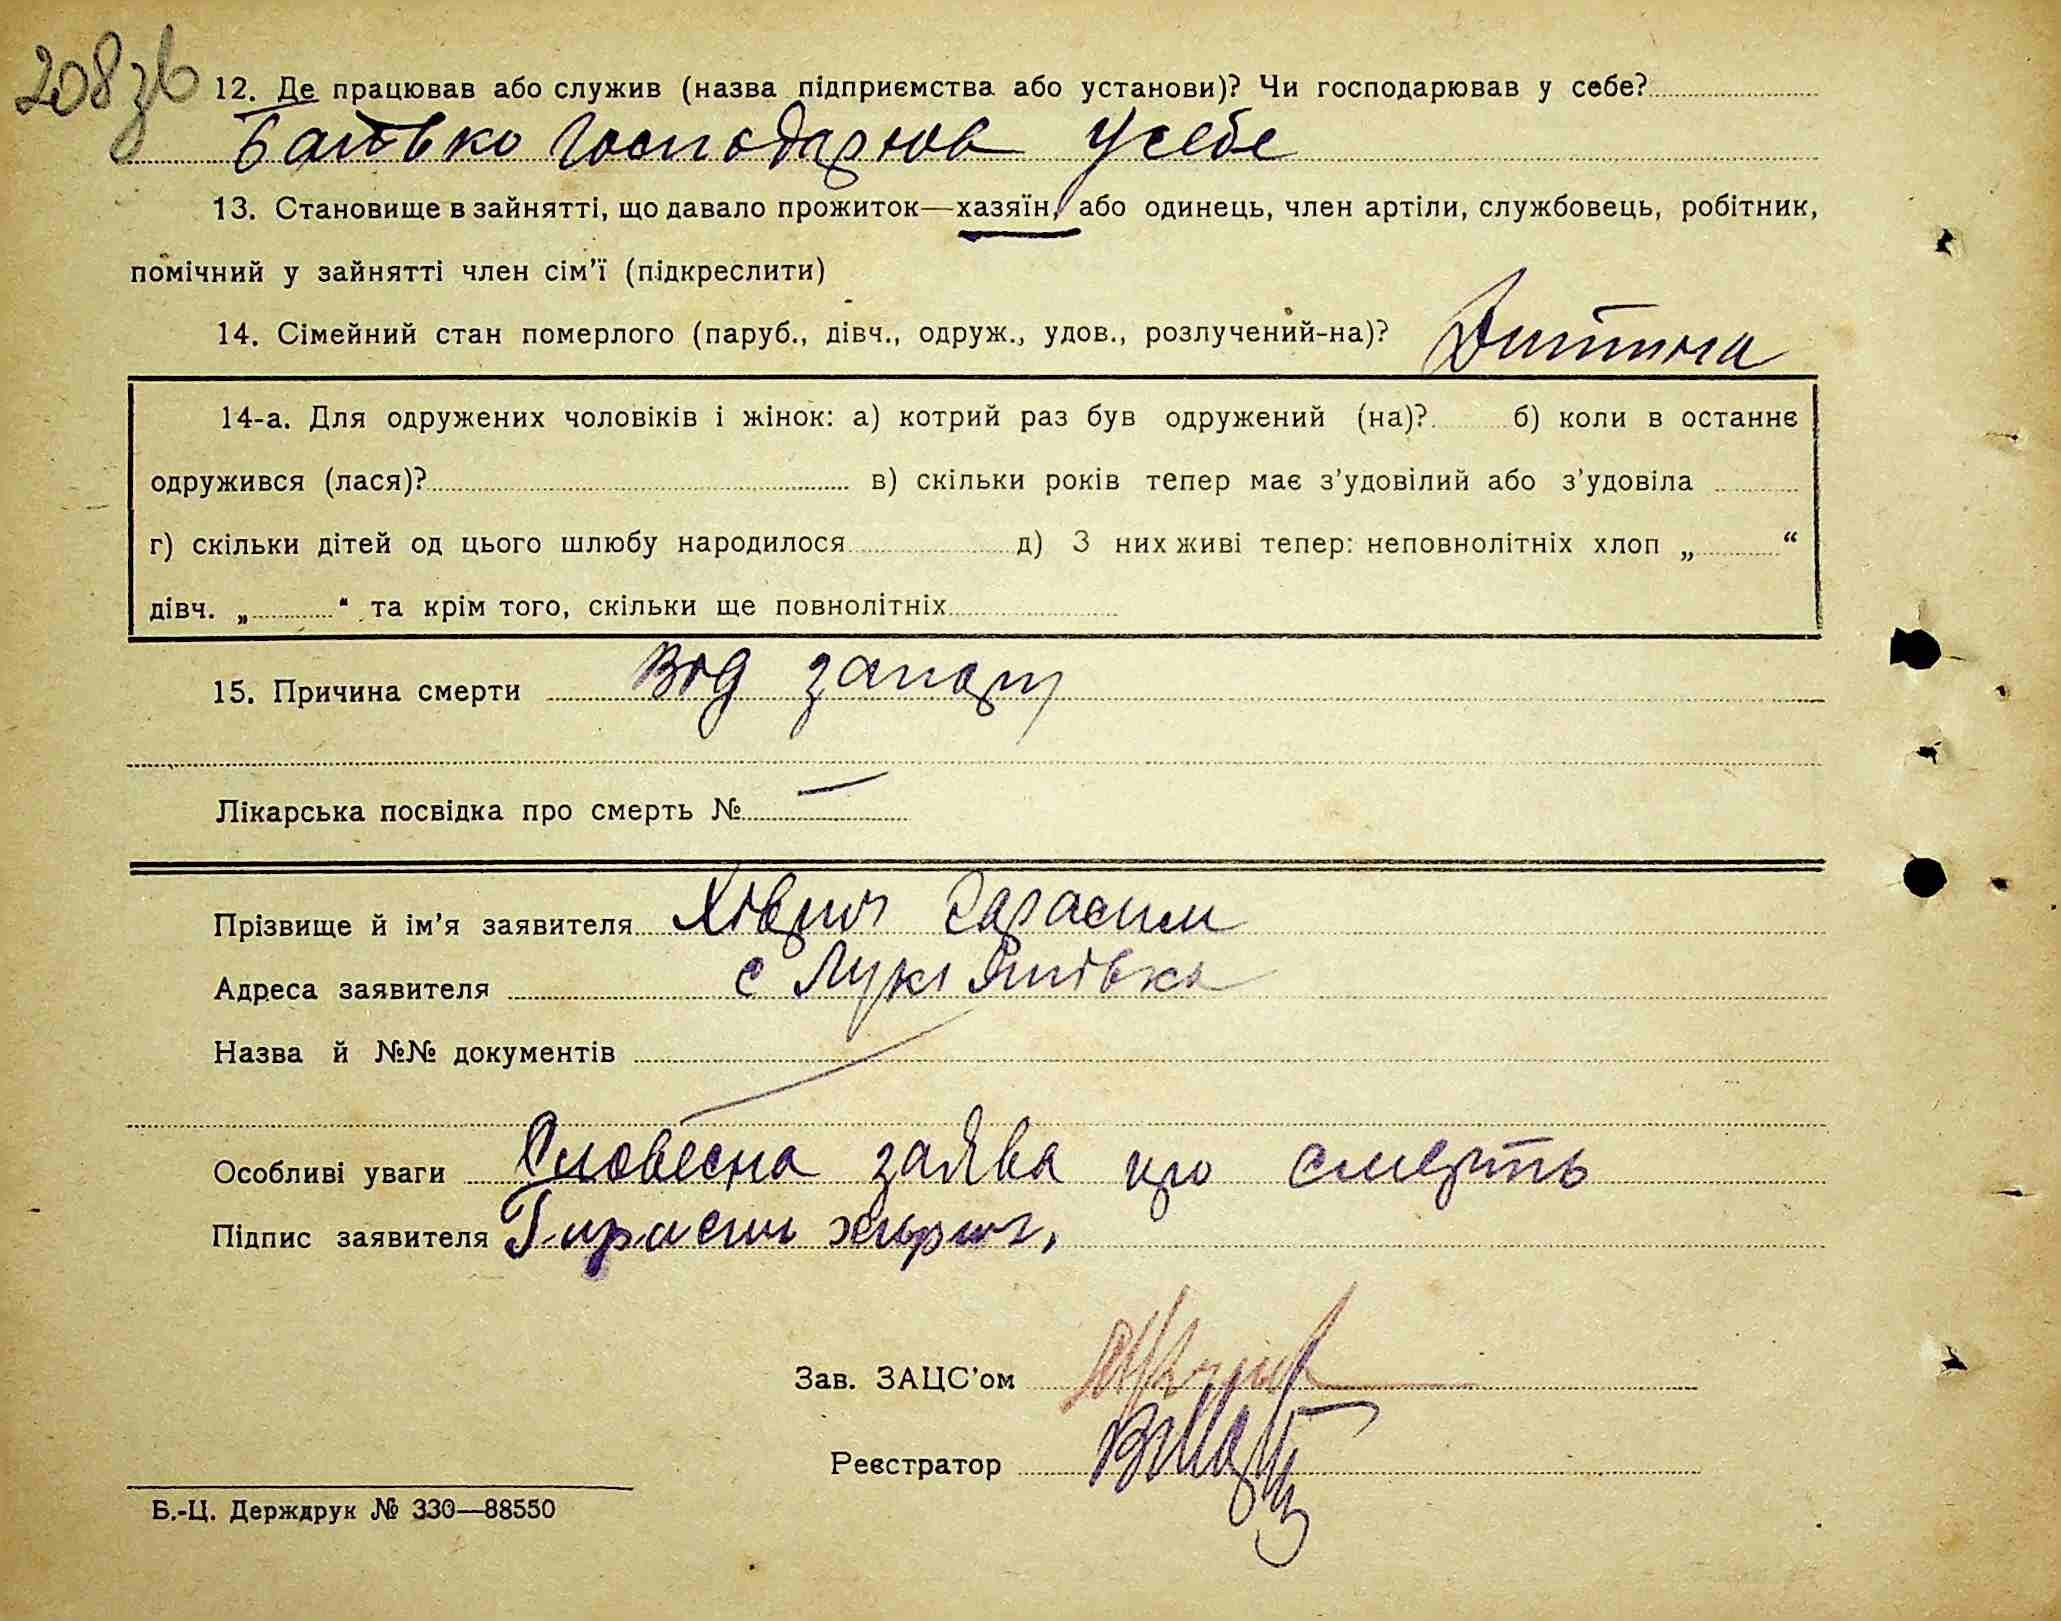 208 зв
12. Де працював або служив (назва підприємства або установи)? Чи господарював у себе?
Батько господарюв у себе
13. Становище в зайнятті, що давало прожиток—хазяїн, або одинець, член артіли, службовець, робітник,
помічний у зайнятті член сім’ї (підкреслити)
14. Сімейний стан померлого (паруб., дівч., одруж., удов., розлучений-на)? Дитина
14-а. Для одружених чоловіків і жінок: а) котрий раз був одружений (на)? б) коли в останнє
одружився (лася)? в) скільки років тепер має з’удовілий або з’удовіла
г) скільки дітей од цього шлюбу народилося д) З них живі тепер: неповнолітніх хлоп „ “
дівч. „ “ та крім того, скільки ще повнолітніх
15. Причина смерти Від
Лікарська посвідка про смерть № —
Прізвище й ім’я заявителя Гарасим
Адреса заявителя с Лукяшівка
Назва й №№ документів
Особливі уваги Словесна заява про смерть
Підпис заявителя Гирасим
Зав. ЗАЦС’ом
Реєстратор
Б.-Ц. Держдрук № 330—88550